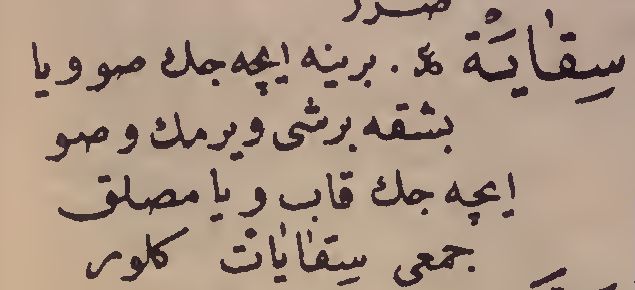 ضرر
سِقَايَةْ ع. برینه ایچه جك صو ویا
بشقه برشی ویرمك وصو
ایچه جك قاب ویا مصلق
جمعی سِقَايَاتْ کلور